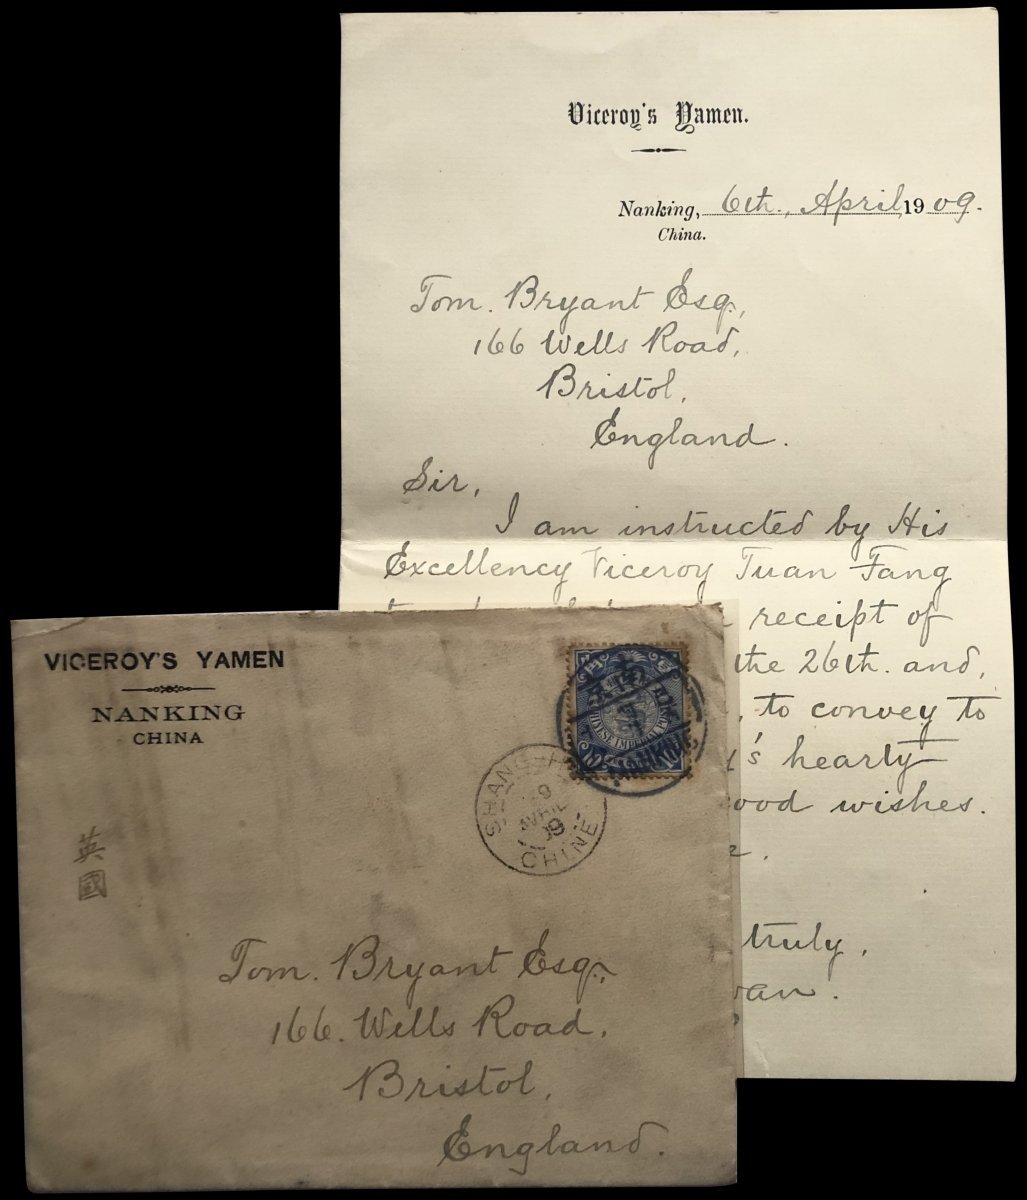 Viceroy's Yamen.
Nanking, 6th, April 1909.
China.
Tom. Bryant Esq.,
166 Wells Road,
Bristol,
England.
Sir,
I am instructed by His
Excellency Viceroy Tuan Fang
receipt of
the 26th. and,
, to convey to
's hearty
good wishes.
truly,
VICEROY'S YAMEN
NANKING
CHINA
CHINESE IMPERIAL POST
NANKING
SHANG-HAI
9
AVRIL
09
CHINE
英
國
Tom. Bryant Esq.,
166. Wells Road,
Bristol,
England.